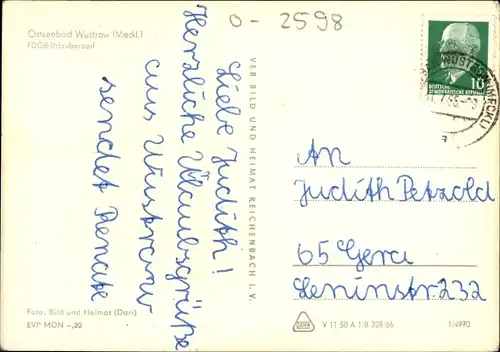 Ostseebad Wustrow (Meckl.)
FDGB-Urlauberdorf
O - 2598
Liebe Judith!
Herzliche Ulaubsgrüße
aus Wustrow
sendet Renate
VEB BILD UND HEIMAT REICHENBACH I. V.
10
DEUTSCHE
DEMOKRATISCHE REPUBLIK
WUSTROW (MECKL)
An
Judith Petzold
65 Gera
Leninstr. 232
Foto: Bild und Heimat (Darr)
EVP MDN -,20
V 11 50 A 1/B 328/66
1/4970